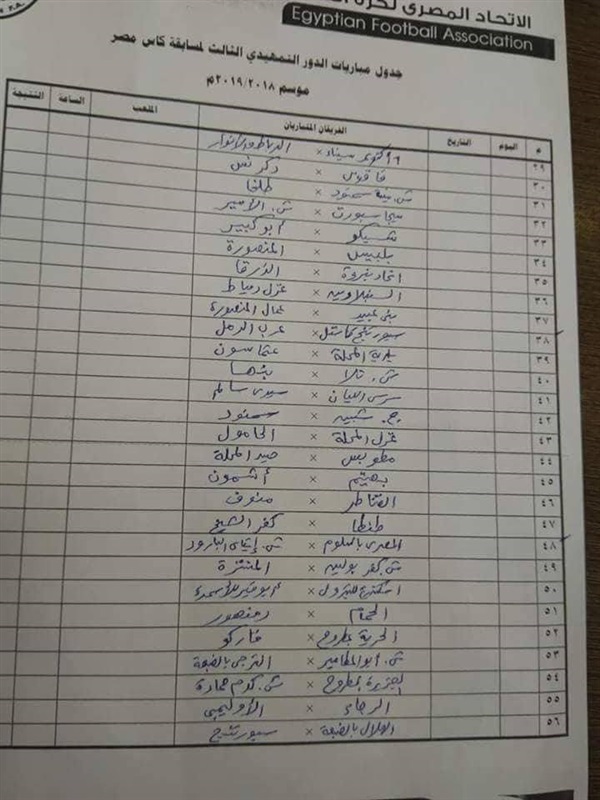 الاتحاد المصرى لكرة
Egyptian Football Association
جدول مباريات الدور التمهيدي الثالث لمسابقة كاس مصر
موسم ٢٠١٩/٢٠١٨م
م اليوم التاريخ الفريقان المتباريان الملعب الساعة النتيجة
٢٩ ٦ أكتوبر سيناء ×
٣٠ فاقوس × دكرنس
٣١ ش. منية سمنود × طلخا
٣٢ ميجا سبورت × ش. الأمير
٣٣ × أبو كبير
٣٤ بلبيس × المنصورة
٣٥ اتحاد نبروة × الزرقا
٣٦ السنبلاوين × غزل دمياط
٣٧ بنى عبيد × عمال المنصورة
٣٨ سبورتنج كاستل × عرب الرمل
٣٩ بلدية المحلة × عثماسون
٤٠ ش. تلا × بنها
٤١ سرس الليان × سيدى سالم
٤٢ ج. شبين × سمنود
٤٣ غزل المحلة × الحامول
٤٤ مطوبس × صيد المحلة
٤٥ بهتيم × أشمون
٤٦ القناطر × منوف
٤٧ طنطا × كفر الشيخ
٤٨ المصرى بالسلوم × ش. إيتاى البارود
٤٩ ش. كفر بولين × المنتزة
٥٠ × أبو قير للأسمدة
٥١ الحمام × دمنهور
٥٢ الحرية بمطروح × فاركو
٥٣ ش. أبو المطامير × الترجى بالضبعة
٥٤ الجزيرة بمطروح × ش. كوم حمادة
٥٥ الرجاء × الأوليمبى
٥٦ الهلال بالضبعة × سبورتنج